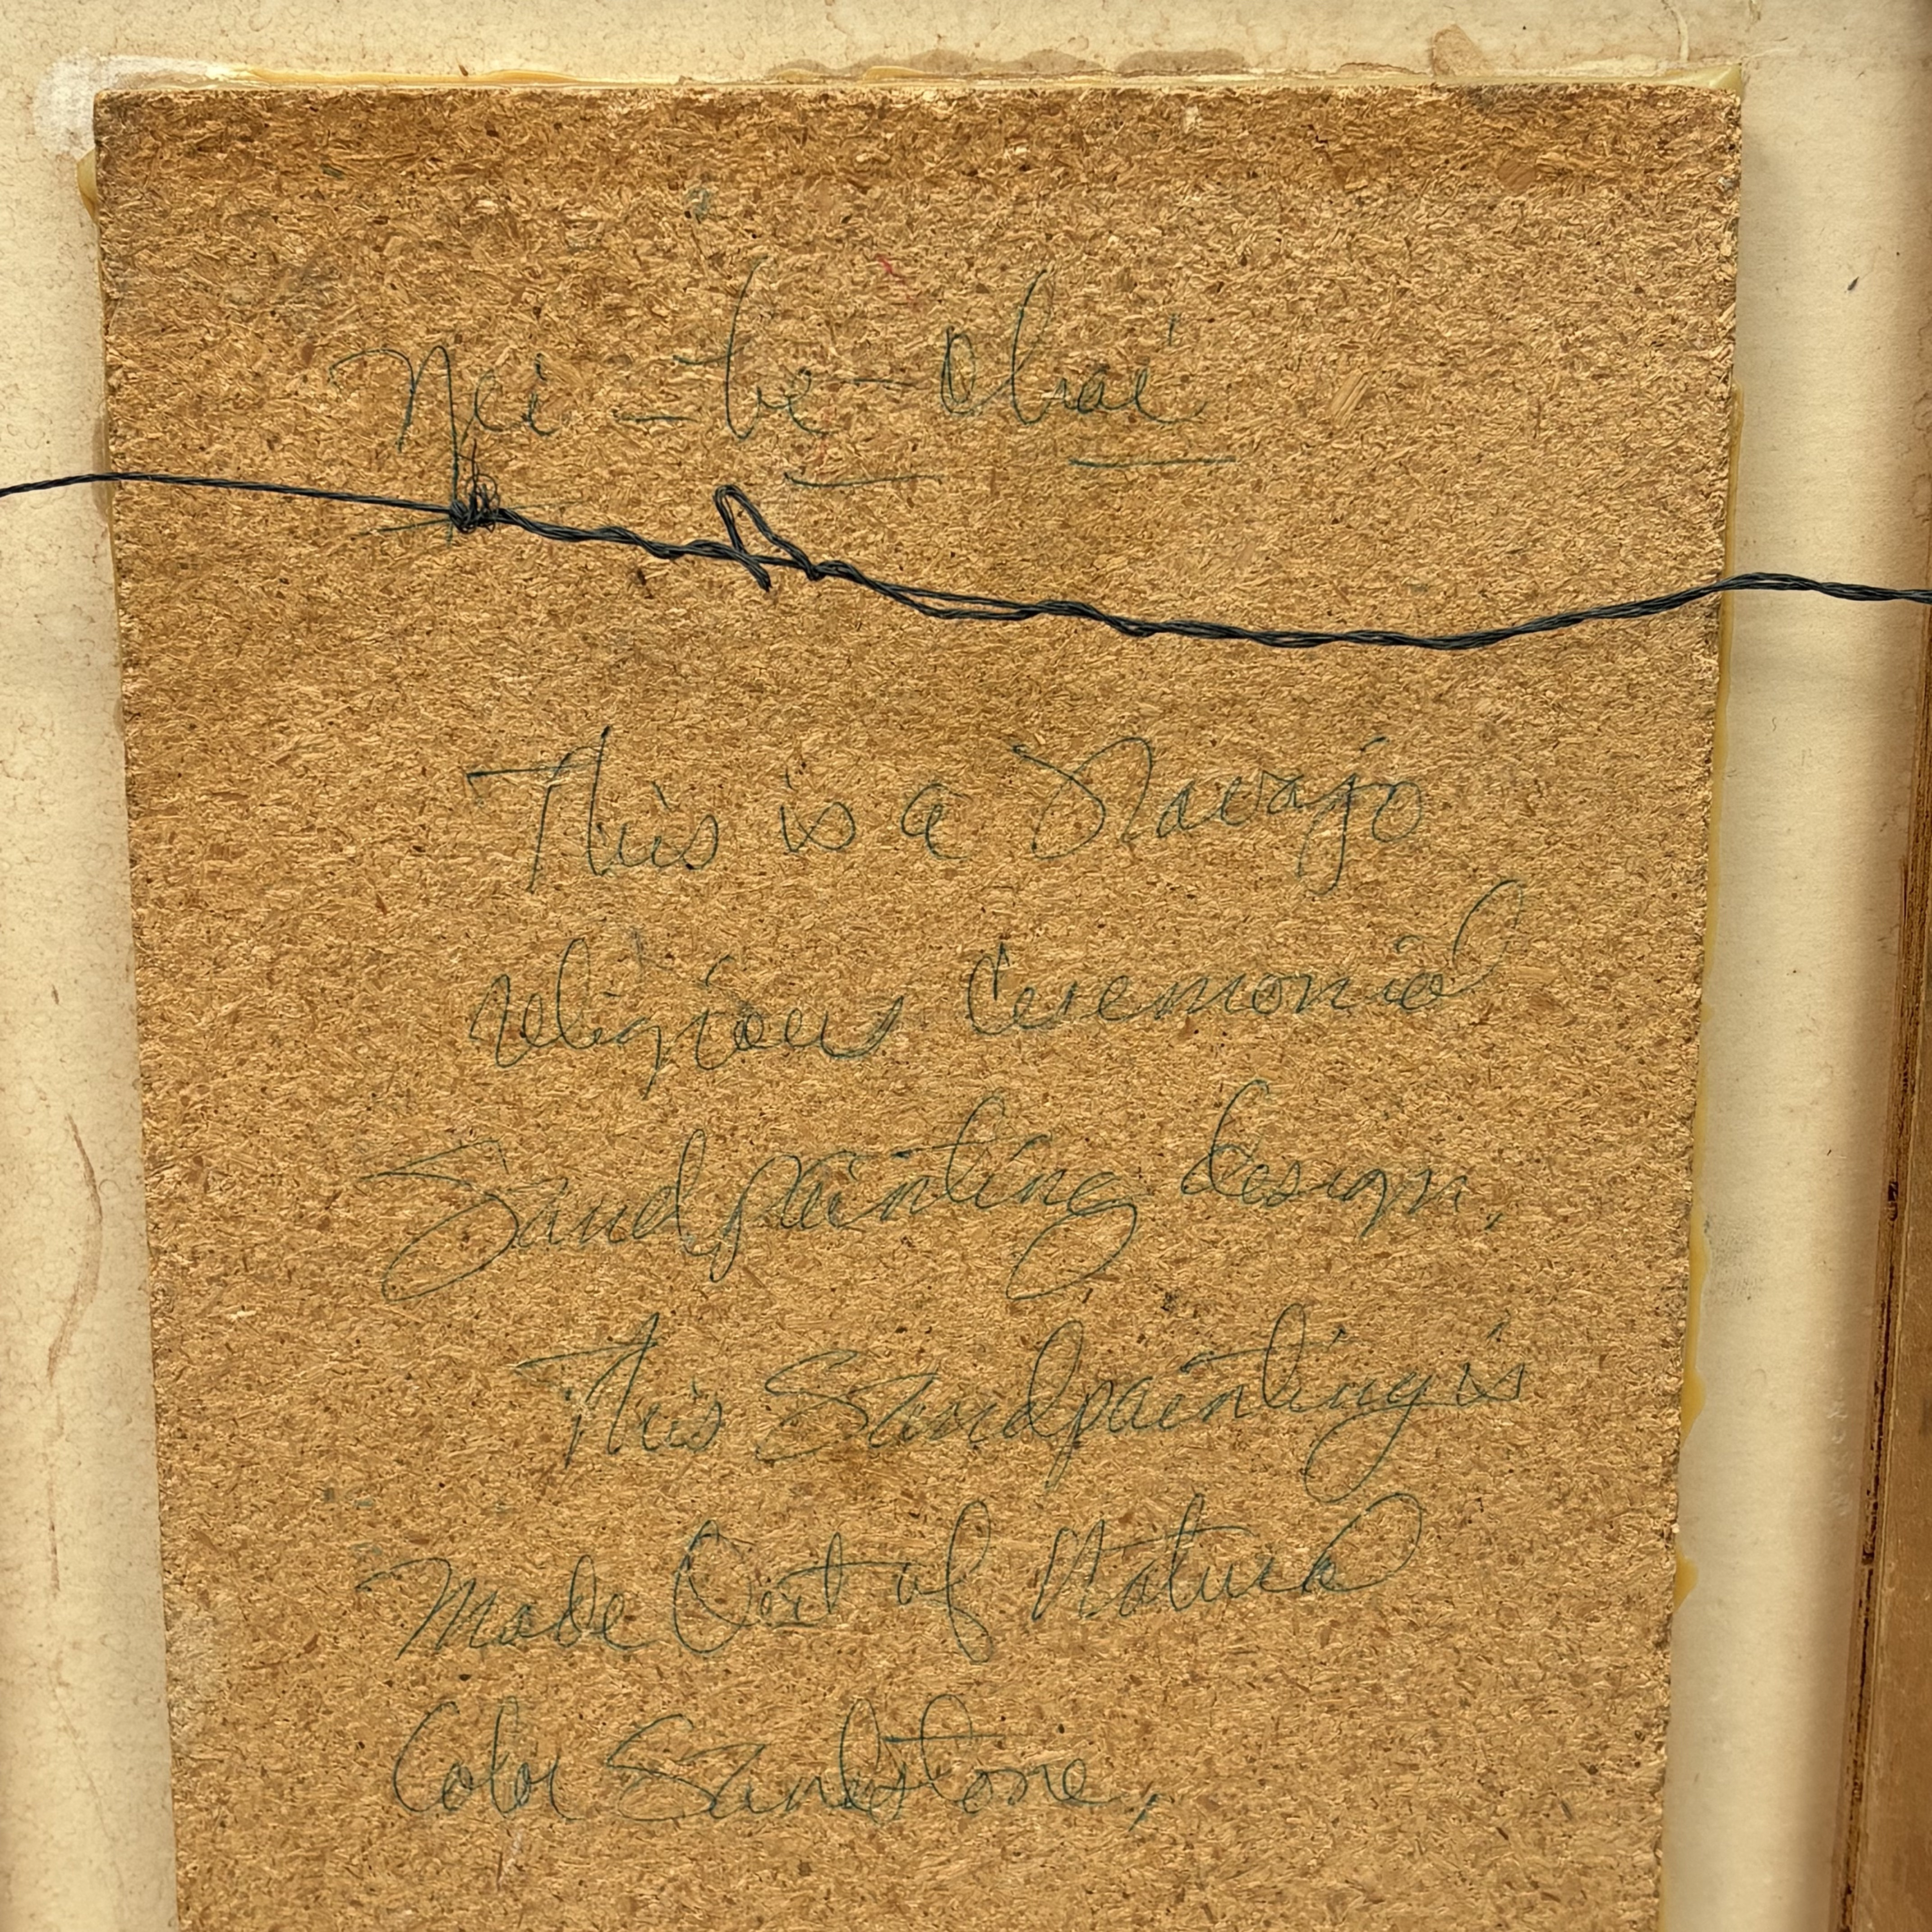 Yei-be-Chai
This is a Navajo
religious Ceremonial
Sandpainting design.
This Sandpainting is
Made Out of Natural
Color Sandstone.